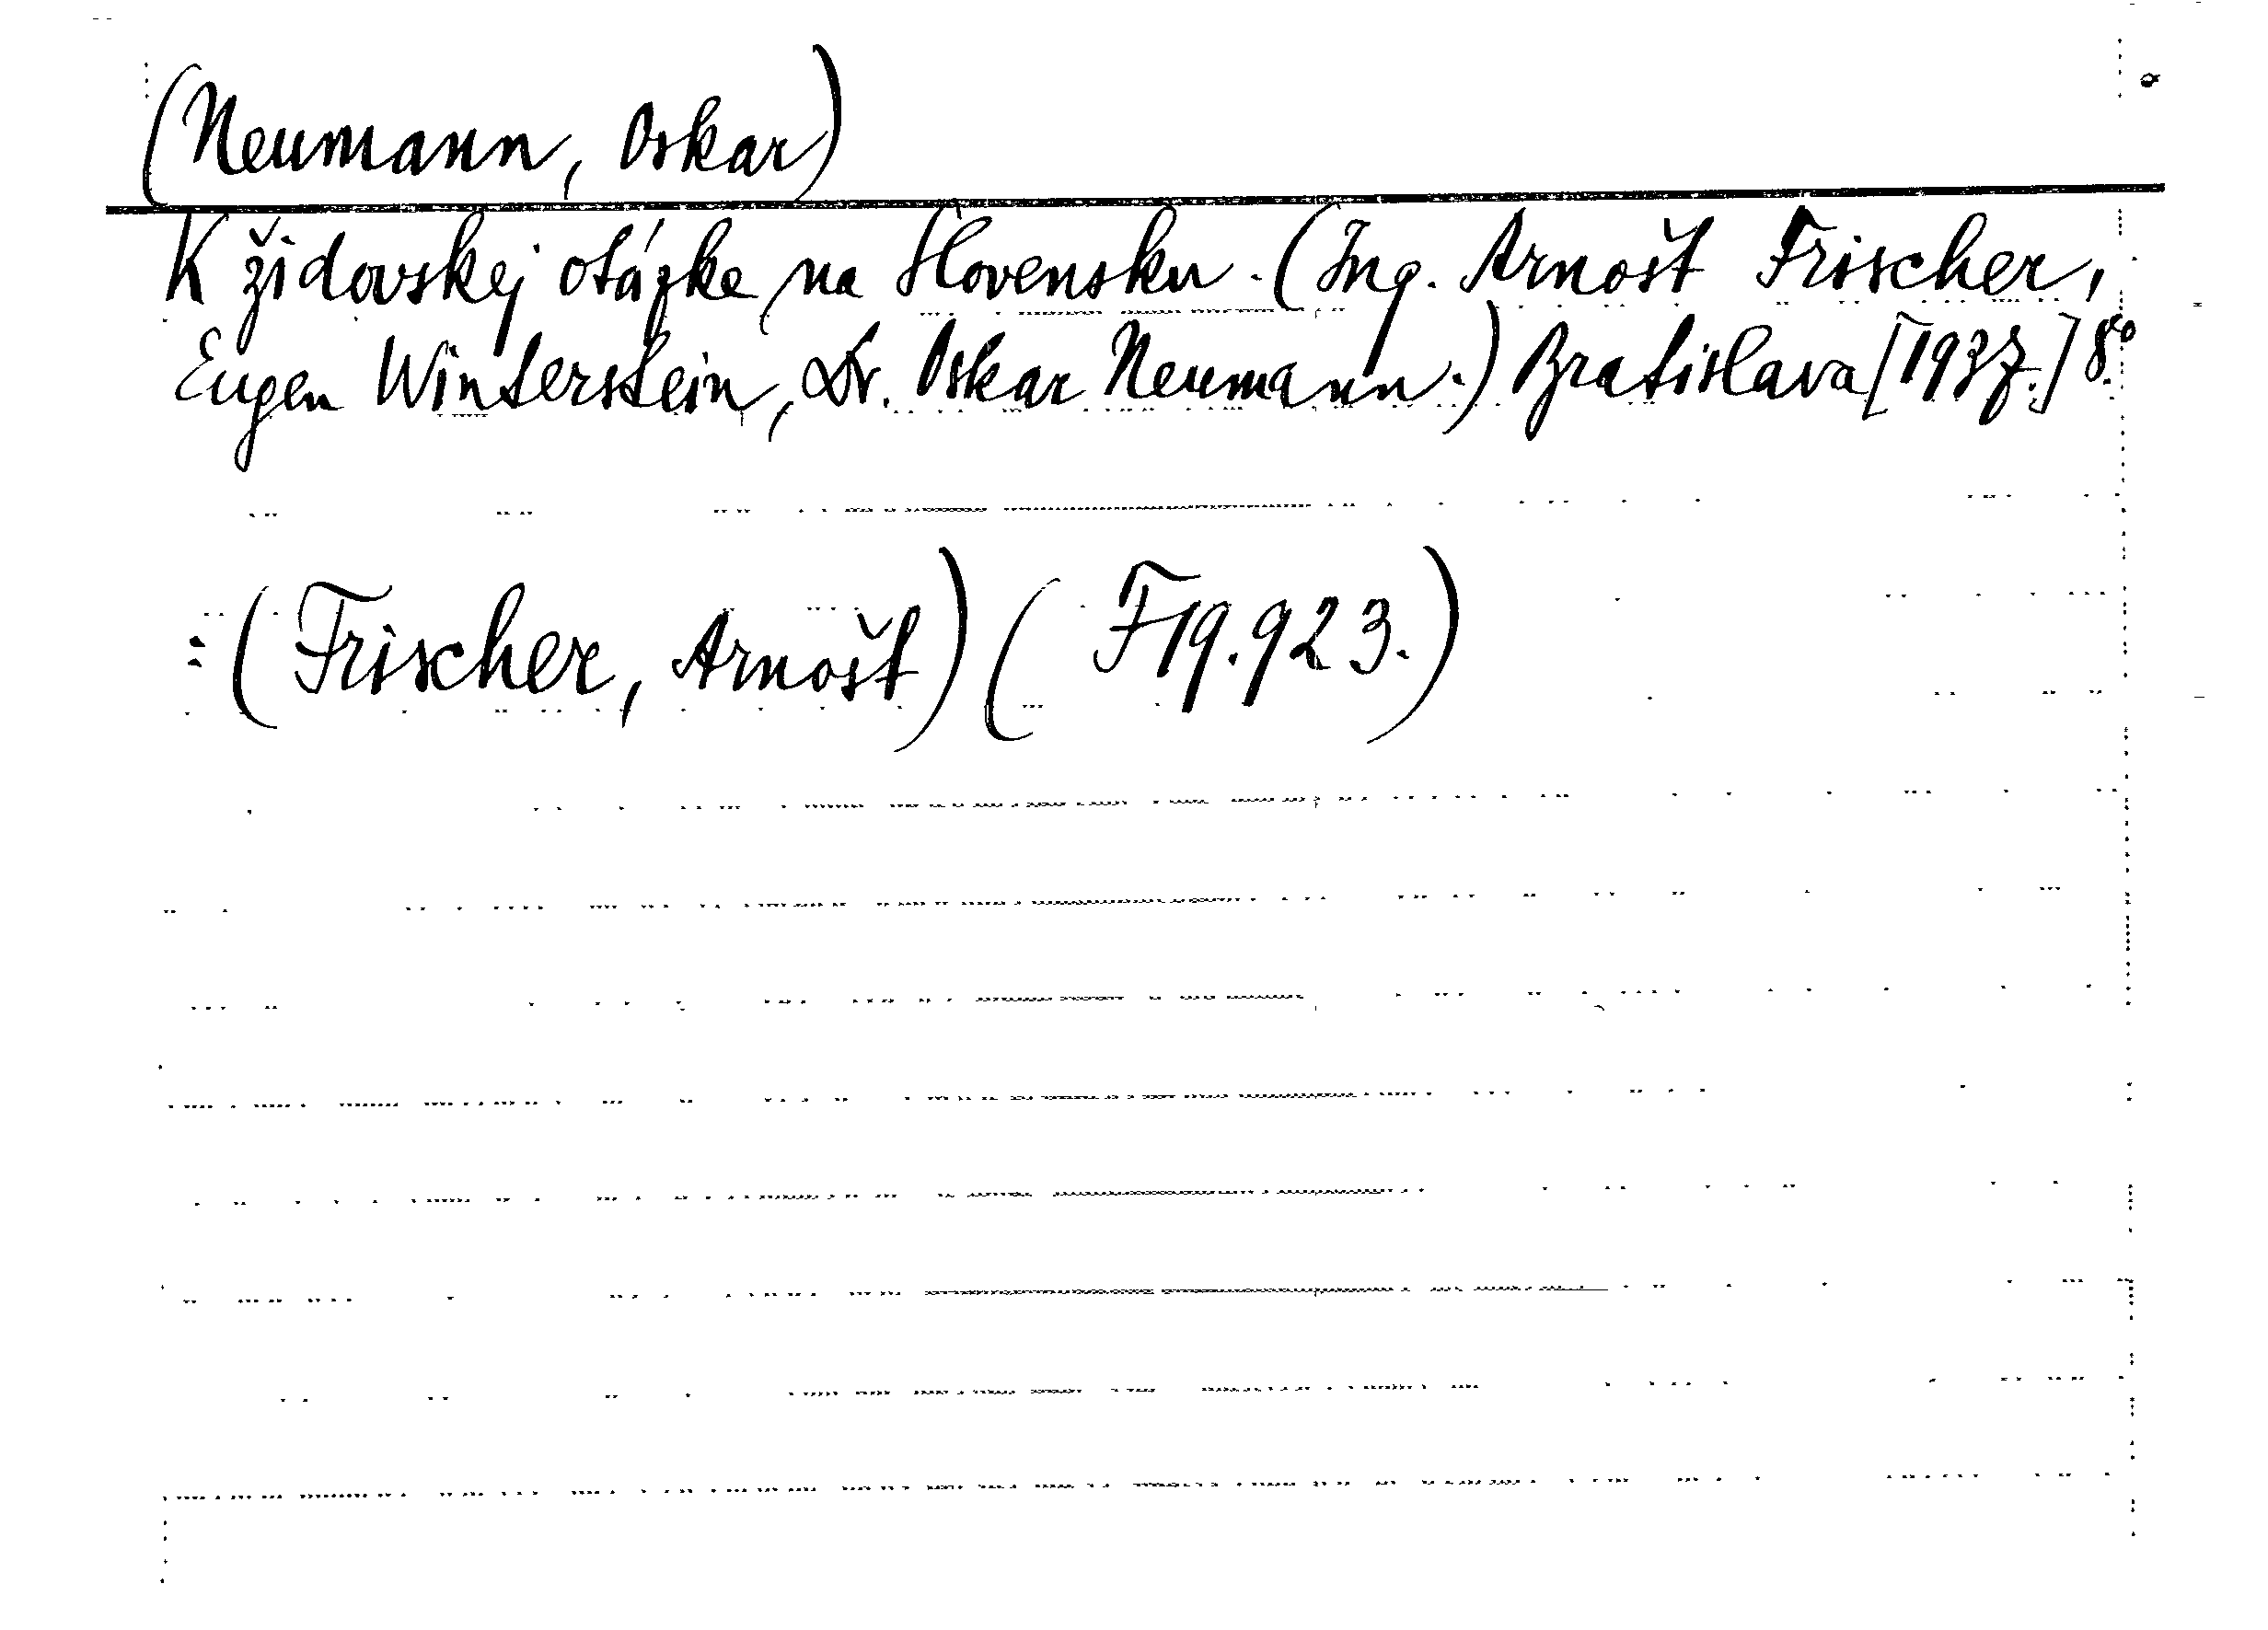 (Neumann, Oskar)
K židovskej otázke na Slovensku. (Ing. Arnošt Frischer,
Eugen Winterstein, Dr. Oskar Neumann.) Bratislava [1937.] 8°.
= (Frischer, Arnošt) (F19.923.)